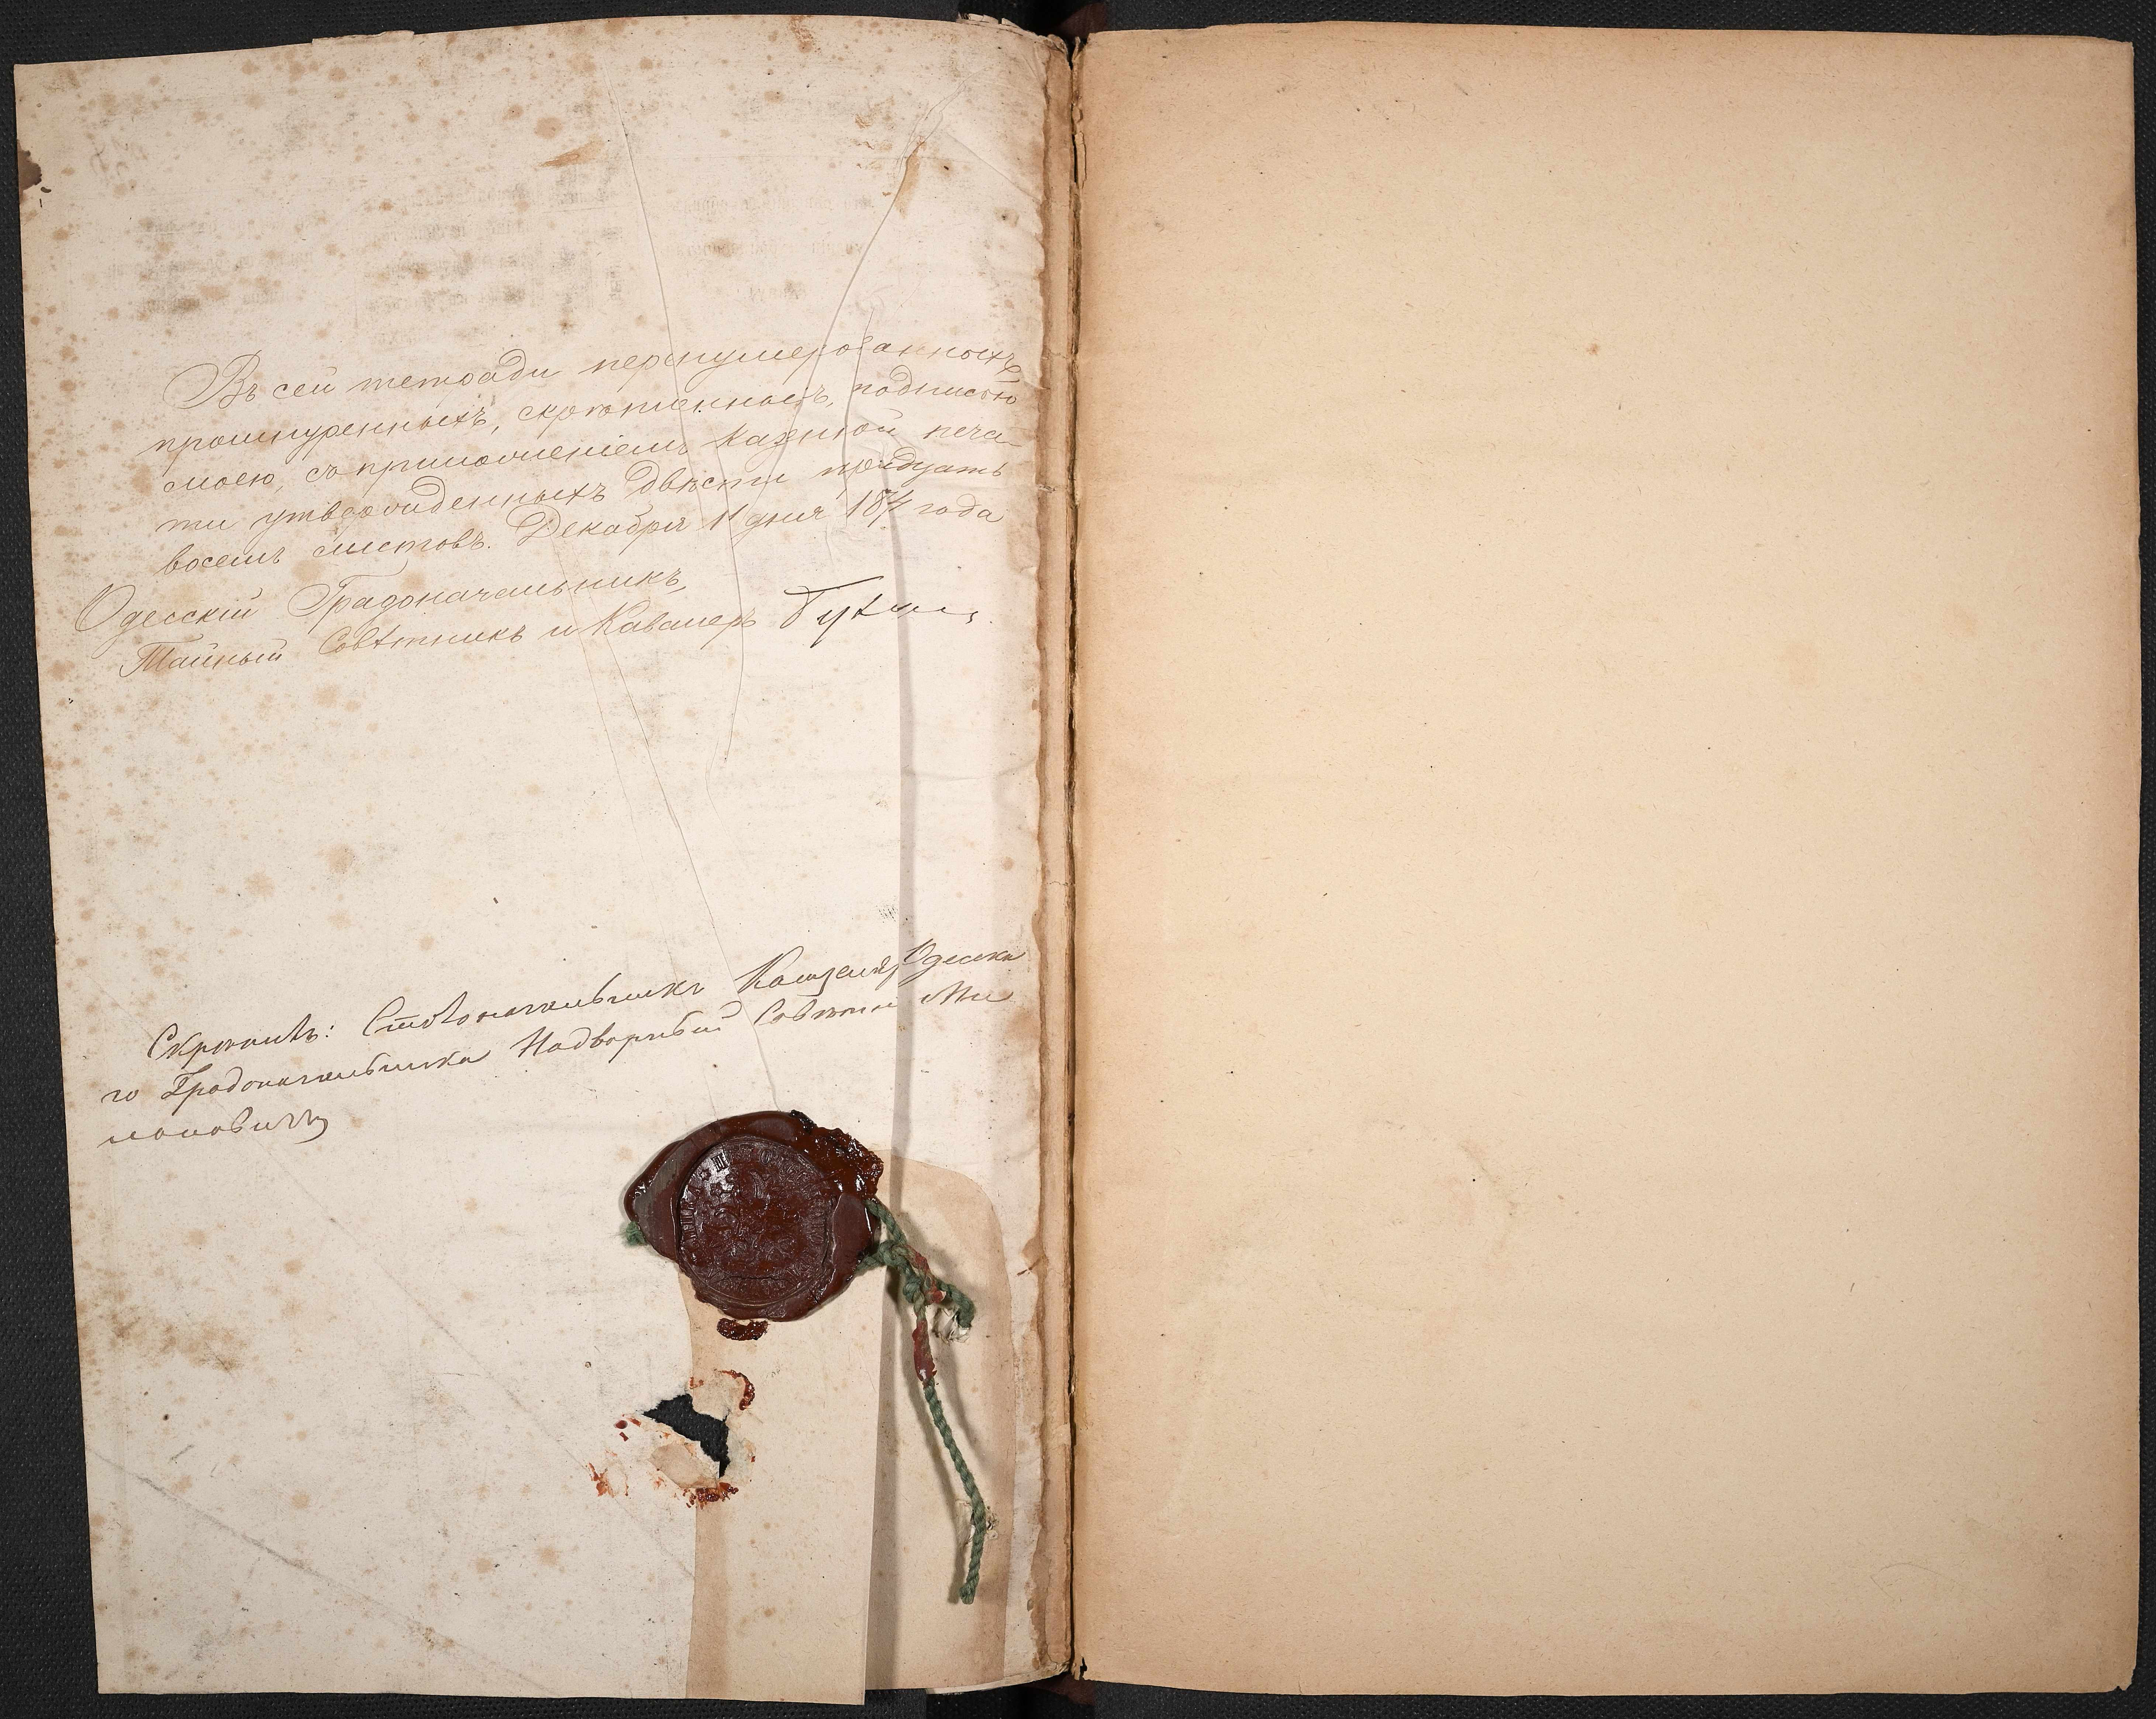 Въ сей тетради перенумерованныхъ,
прошнуренныхъ, скрѣпленныхъ, подписью
моею, съ приложеніемъ казенной печа-
ти утвержденныхъ двѣсти тридцать
восемь листовъ. Декабря 11 дня года
Одесскій Градоначальникъ,
Тайный Совѣтникъ и Кавалеръ
Скрѣпилъ: Столоначальникъ Канцеляр Одеска
го Градоначальника Надворный Совѣтни